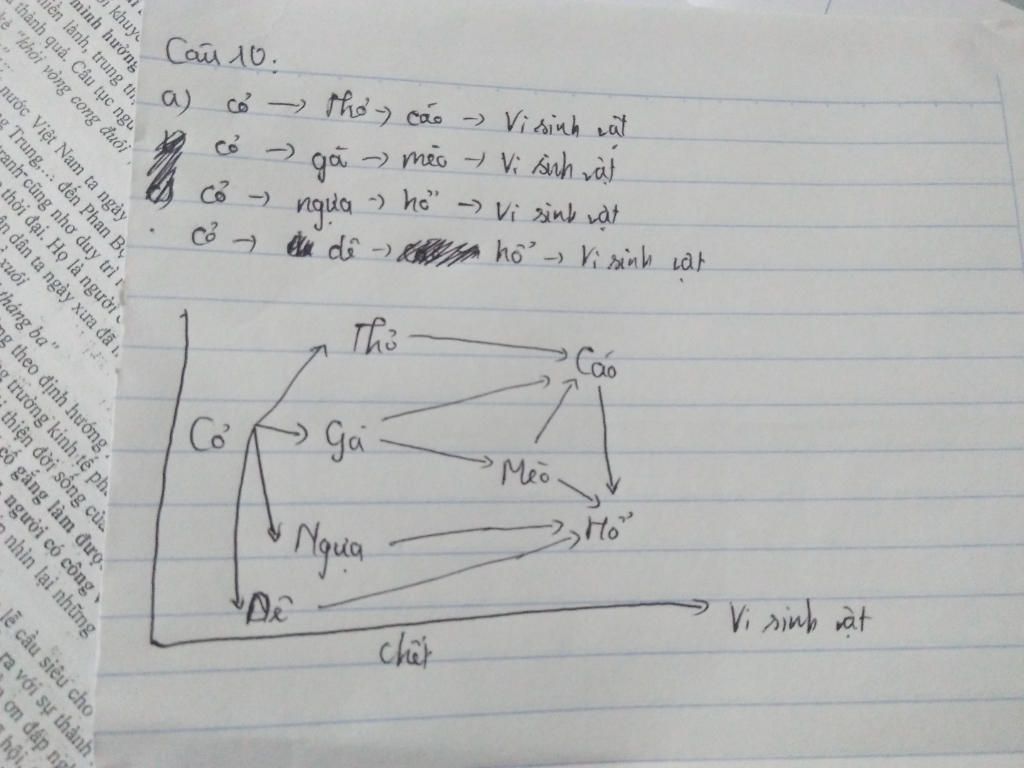 iên lành, trung th
thành quả. Câu tục ngữ
nước Việt Nam ta ngày
g Trung,... đến Phan B
tranh cũng như duy trì
thời đại. Họ là người
ân dân ta ngày xưa đã
tháng ba"
ng theo định hướng
g trưởng kinh tế ph
i thiện đời sống của
có gắng làm đượ
người có công
nhìn lại những
lễ cầu siêu cho
ra với sự thành
n ơn đáp ng
Câu 10:
a) cỏ → Thỏ → cáo → Vi sinh vật
cỏ → gà → mèo → Vi sinh vật
cỏ → ngựa → hổ → Vi sinh vật
cỏ → dê → hổ → Vi sinh vật
Thỏ
Cáo
Cỏ
Gà
Mèo
Ngựa
Hổ
Dê
Vi sinh vật
Chết